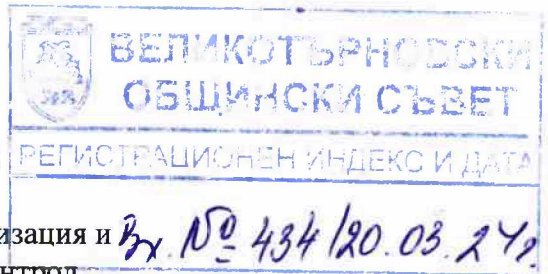 ВЕЛИКОТЪРНОВСКИ
ОБЩИНСКИ СЪВЕТ
РЕГИСТРАЦИОНЕН ИНДЕКС И ДАТА
изация и Вх. № 434/20.03.24г.
нтрол